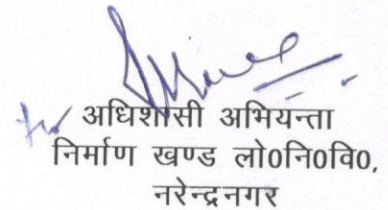 अधिशासी अभियन्ता
निर्माण खण्ड लो०नि०वि०,
नरेन्द्रनगर